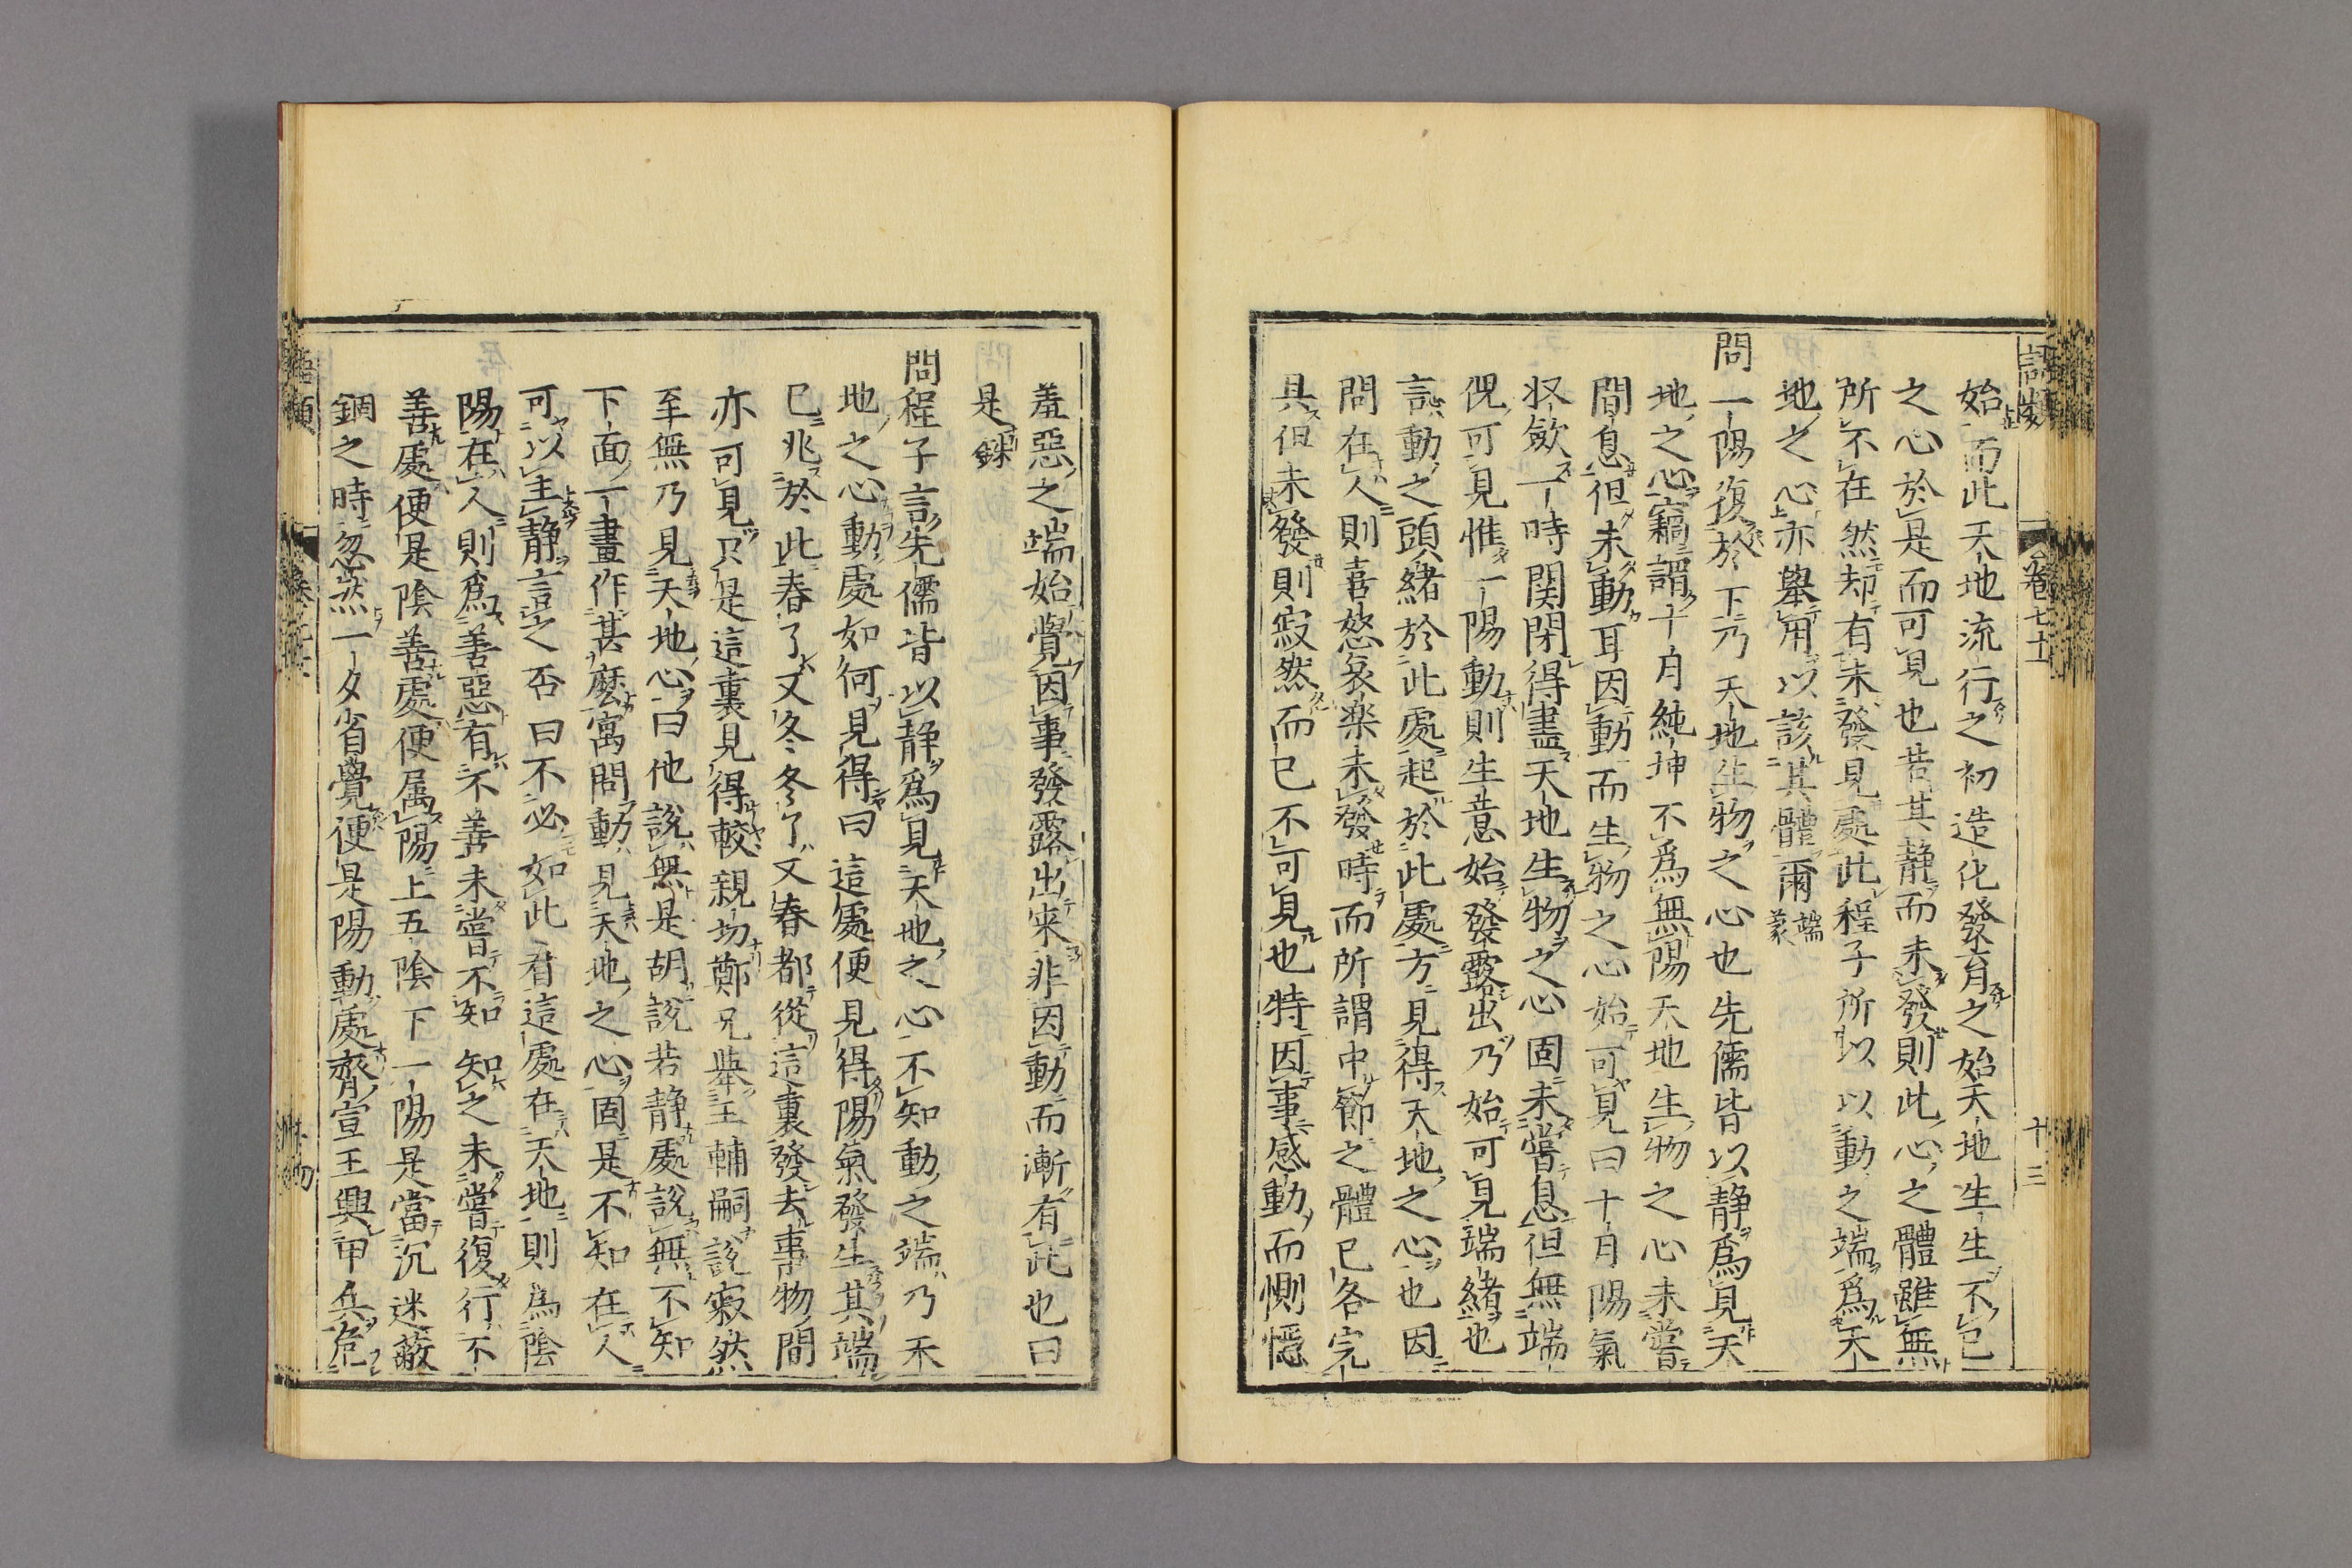 語類 卷七十一 十三
始而此天地流行之初造化發育之始天地生生不已
之心於是而可見也若其靜而未發則此心之體雖無
所不在然却有未發見處此程子所以以動之端爲天
地之心亦舉用以該其體爾 端蒙
問一陽復於下乃天地生物之心也先儒皆以静爲見天
地之心竊謂十月純坤不爲無陽天地生物之心未嘗
間息但未動耳因動而生物之心始可見曰十月陽氣
收歛一時関閉得盡天地生物之心固未嘗息但無端
倪可見惟一陽動則生意始發露出乃始可見端緒也
言動之頭緒於此處起於此處方見得天地之心也因
問在人則喜怒哀楽未發時而所謂中節之體已各完
具但未發則寂然而已不可見也特因事感動而惻隠
羞惡之端始覺因事發露出来非因動而漸有此也曰
是 銖
問程子言先儒皆以静爲見天地之心不知動之端乃天
地之心動處如何見得曰這處便見得陽氣發生其端
已兆於此春了又冬冬了又春都從這裏發去事物間
亦可見只是這裏見得較親切鄭兄舉王輔嗣說寂然
至無乃見天地心曰他說無是胡說若静處說無不知
下面一畫作甚麼寓問動見天地之心固是不知在人
可以主静言之否曰不必如此看這處在天地則爲陰
陽在人則爲善惡有不善未嘗不知知之未嘗復行不
善處便是陰善處便属陽上五陰下一陽是當沉迷蔽
錮之時忽然一夕省覺便是陽動處齊宣王興甲兵危
語類